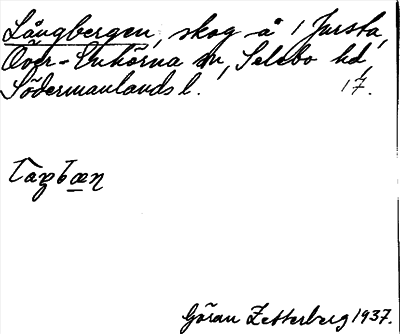 Långbergen, skog å 1 Jursta,
Över-Enhörna sn, Selebo hd,
Södermanlands l. 17.
Göran Zetterberg 1937.